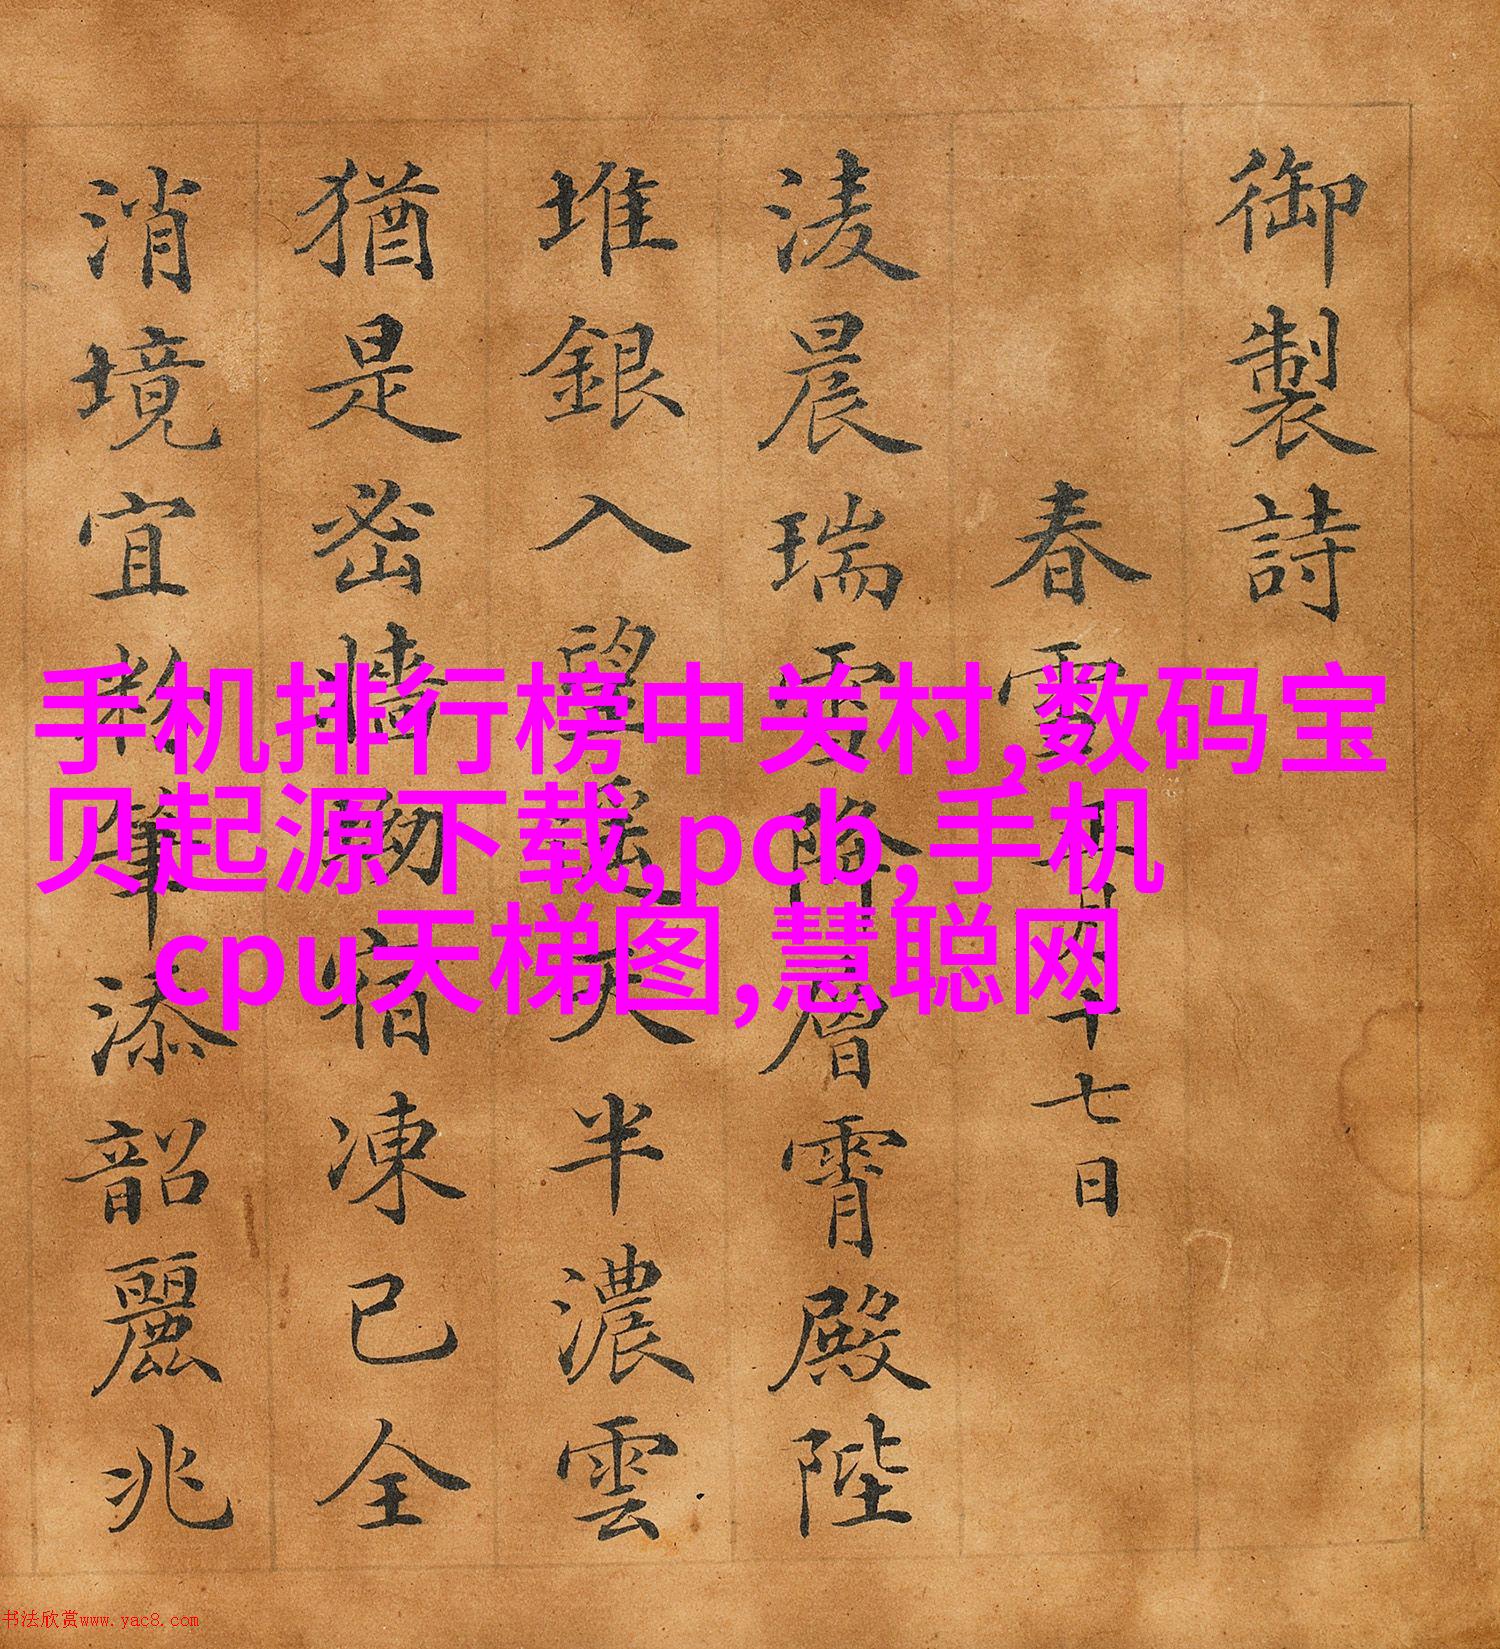 御製詩
春雪 正月十七日
淩晨瑞雪降層霄殿陛
堆銀入望遥天半濃雲
猶是宻墻坳宿凍已全
消境宜粉筆添韶麗兆
手机排行榜中关村,数码宝
贝起源下载,pcb,手机
cpu天梯图,慧聪网
书法欣赏www.yac8.com